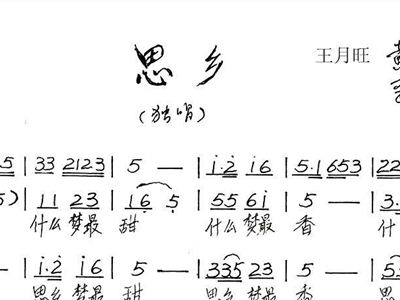 思乡
王月旺
(独唱)
5 | 33 2123 | 5 — | i·2 i6 | 5·1 653 | 22
5) | 11 23 | 16 5 | 55 6i | 5 — | 3·
什么 梦最 甜 什么 梦最 香 什
— | i·2 i6 | 5 — | 335 23 | 5 — | 5
思乡 梦最 甜 思乡 梦最 香 思